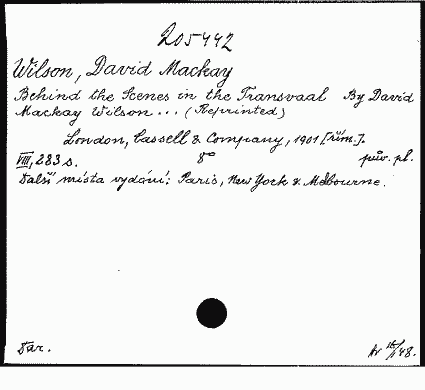 205442
Wilson, David Mackay
Behind the Scenes in the Transvaal By David
Mackay Wilson ... (Reprinted)
London, Cassell & Company, 1901 [řím.].
VIII, 283 s. 8° pův. pl.
Další místa vydání: Paris, New York & Melbourne.
Dar.